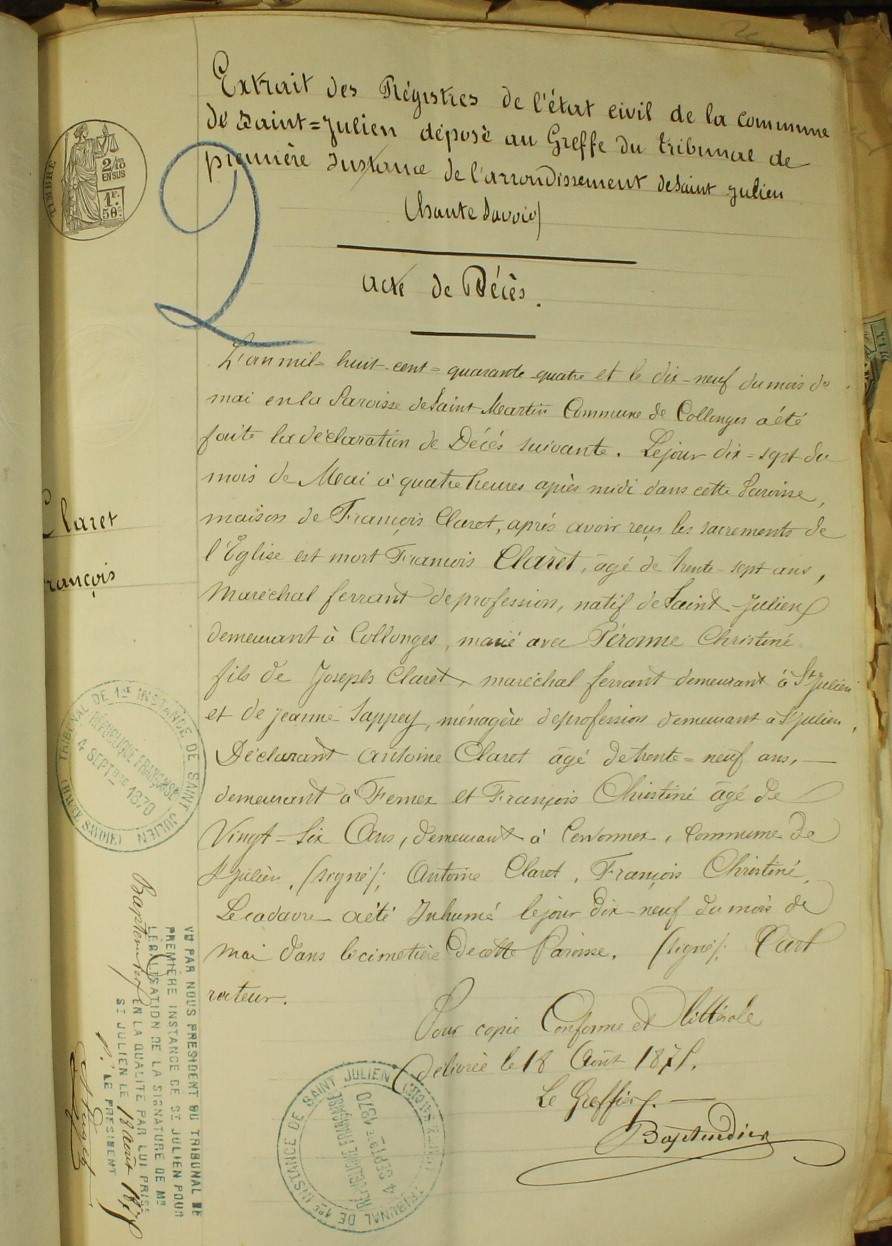 Extrait des Régistres de l'état civil de la Commune
de Saint=Julien déposé au Greffe du tribunal de
première Instance de l'arrondissement de Saint Julien
(haute Savoie)
TIMBRE
2/10
EN SUS
1F.
50c
2
acte de Décès.
L'an mil huit-cent=quarante-quatre et le dix-neuf du mois de
mai en la Paroisse de Saint Martin Commune de Collonges a été
faite la déclaration de Décés suivante. Le jour dix-sept du
mois de Mai à quatre heures après midi dans cette Paroisse,
maison de François Claret, après avoir reçu les sacrements de
l'Eglise est mort François Claret, âgé de trente-sept ans,
Maréchal ferrant de profession, natif de Saint-Julien
demeurant à Collonges, marié avec Péronne Christiné
fils de Joseph Claret, maréchal ferrant demeurant à St Julien
et de Jeanne Sappey, ménagère de profession demeurant à St Julien,
Déclarant Antoine Claret âgé de trente=neuf ans,
demeurant à Fernex et François Christiné âgé de
Vingt-Six Ans, demeurant à Cervonnex, commune de
St Julien, (signé): Antoine Claret, François Christiné,
Le cadavre a été Inhumé le jour dix-neuf du mois de
mai dans le cimetière de cette Paroisse. (signé):
recteur.
Claret
François
Pour copie Conforme et littérale
délivrée le 18 Août 1871.
Le Greffier
TRIBUNAL DE 1re INSTANCE DE SAINT JULIEN
(HAUTE SAVOIE)
REPUBLIQUE FRANÇAISE
4 SEPTbre 1870
VU PAR NOUS PRESIDENT DU TRIBUNAL DE
PREMIÈRE INSTANCE DE ST JULIEN POUR
LEGALISATION DE LA SIGNATURE DE Mr
EN LA QUALITÉ PAR LUI PRISE
ST JULIEN LE 18 août 1871
LE PRESIDENT
TRIBUNAL DE 1re INSTANCE DE SAINT JULIEN
(HAUTE SAVOIE)
REPUBLIQUE FRANÇAISE
4 SEPTbre 1870